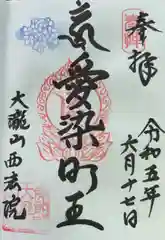 奉拝
令和五年
六月十七日
愛染明王
大瀧山